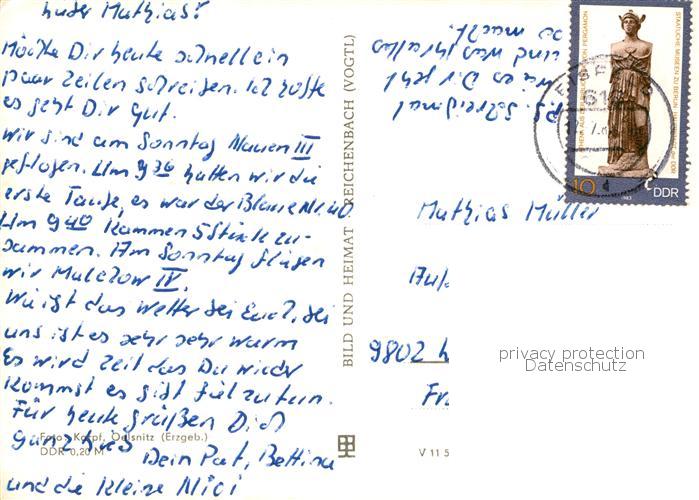 Lieber Mathias!
Möchte Dir heute schnell ein
paar Zeilen schreiben. Ich hoffe
es geht Dir gut.
Wir sind am Sonntag Nauen III
geflogen. Um 9 36 hatten wir die
erste Taube, es war der Blaue Nr. 40.
Um 9 40 kammen 5 Stück zu-
sammen. Am Sonntag flügen
wir Malchow IV.
Wie ist das Wetter bei Euch, bei
uns ist es sehr sehr warm
Es wird Zeit das Du wieder
kommst es gibt fiel zu tun.
Für heute grüßen Dich
ganz lieb
Dein Pat, Bettina
und die kleine Mici
Foto: Karpf, Oelsnitz (Erzgeb.)
DDR 0,20 M
BILD UND HEIMAT REICHENBACH (VOGTL)
V 11 5
P.S. Schreib mal
wie es Dir geht
und was ihr alles
so macht.
STAATLICHE MUSEEN ZU BERLIN HAUPTSTADT der DDR
10
DDR
1983
Mathias Müller
9802
privacy protection
Datenschutz